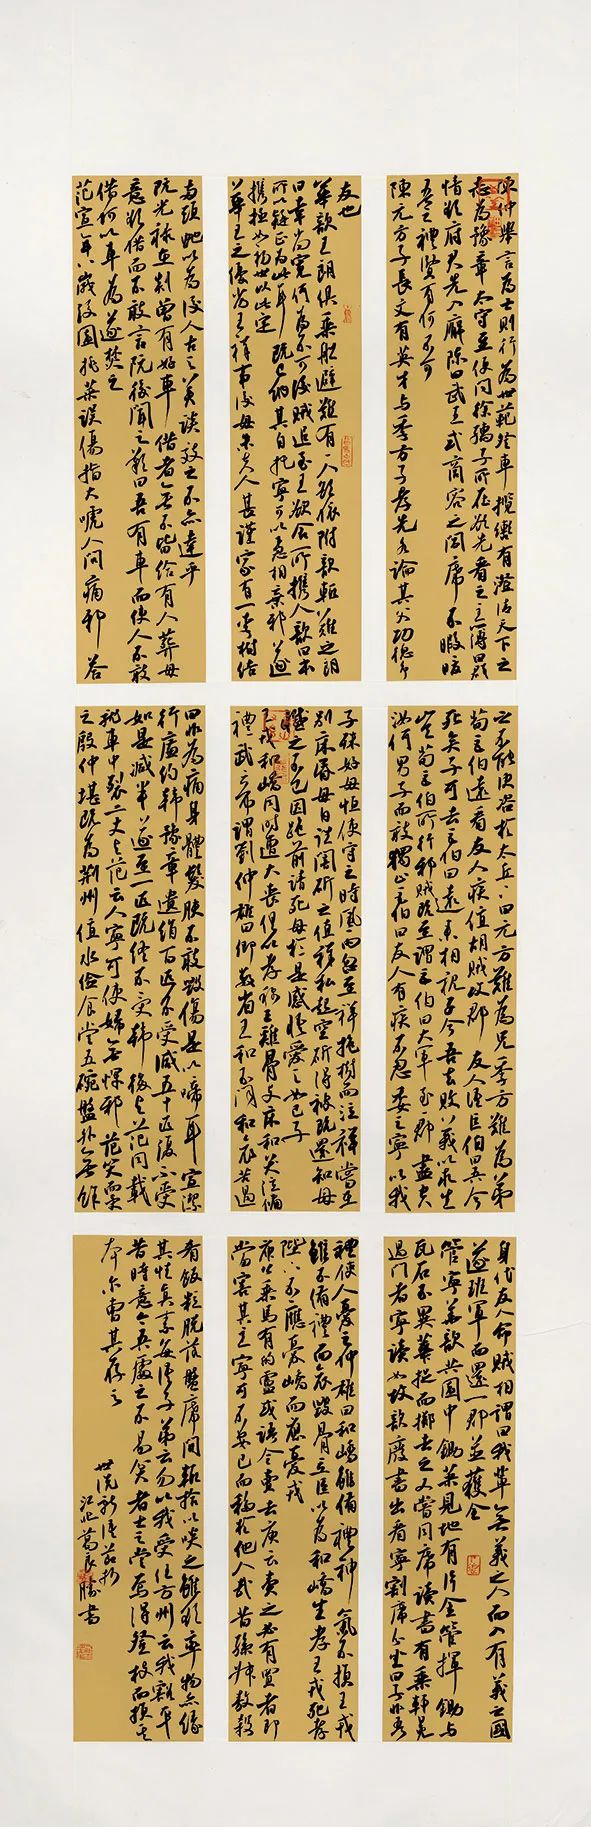 陳仲舉言為士則行為世範登車攬轡有澄清天下之
志為豫章太守至便問徐孺子所在欲先看之主簿曰群
情欲府君先入廨陳曰武王式商容之閭席不暇暖
吾之禮賢有何不可
陳元方子長文有英才與季方子孝先各論其父功德爭
之不能決咨於太丘太丘曰元方難為兄季方難為弟
荀巨伯遠看友人疾值胡賊攻郡友人語巨伯曰吾今
死矣子可去巨伯曰遠來相視子令吾去敗義以求生
豈荀巨伯所行邪賊既至謂巨伯曰大軍至一郡盡空
汝何男子而敢獨止巨伯曰友人有疾不忍委之寧以我
身代友人命賊相謂曰我輩無義之人而入有義之國
遂班軍而還一郡並獲全
管寧華歆共園中鋤菜見地有片金管揮鋤與
瓦石不異華捉而擲去之又嘗同席讀書有乘軒冕
過門者寧讀如故歆廢書出看寧割席分坐曰子非吾
友也
華歆王朗俱乘船避難有一人欲依附歆輒難之朗
曰幸尚寬何為不可後賊追至王欲舍所攜人歆曰本
所以疑正為此耳既已納其自托寧可以急相棄邪遂
攜拯如初世以此定
華王之優劣王祥事後母朱夫人甚謹家有一李樹結
子殊好母恒使守之時風雨忽至祥抱樹而泣祥嘗在
別床眠母自往闇斫之值祥私起空斫得被既還知母
憾之不已因跪前請死母於是感悟愛之如己子
王戎和嶠同時遭大喪俱以孝稱王雞骨支床和哭泣備
禮武帝謂劉仲雄曰卿數省王和不聞和哀苦過
禮使人憂之仲雄曰和嶠雖備禮神氣不損王戎
雖不備禮而哀毀骨立臣以為和嶠生孝王戎死孝
陛下不應憂嶠而應憂戎
庾公乘馬有的盧或語令賣去庾云賣之必有買者即
當害其主寧可不安己而移於他人哉昔孫叔敖殺
兩頭蛇以為後人古之美談效之不亦達乎
阮光祿在剡曾有好車借者無不皆給有人葬母
意欲借而不敢言阮後聞之歎曰吾有車而使人不敢
借何以車為遂焚之
范宣年八歲後園挑菜誤傷指大啼人問痛邪答
曰非為痛身體髮膚不敢毀傷是以啼耳宣潔
行廉約韓豫章遺絹百匹不受減五十匹復不受
如是減半遂至一匹既終不受韓後與范同載
就車中裂二丈與范云人寧可使婦無褌邪范笑而受
之殷仲堪既為荊州值水儉食常五碗盤外無餘
肴飯粒脫落盤席間輒拾以啖之雖欲率物亦緣
其性真素每語子弟云勿以我受任方州云我豁平
昔時意今吾處之不易貧者士之常焉得登枝而損其
本爾曹其存之
世說新語節抄
江北葛良勝書